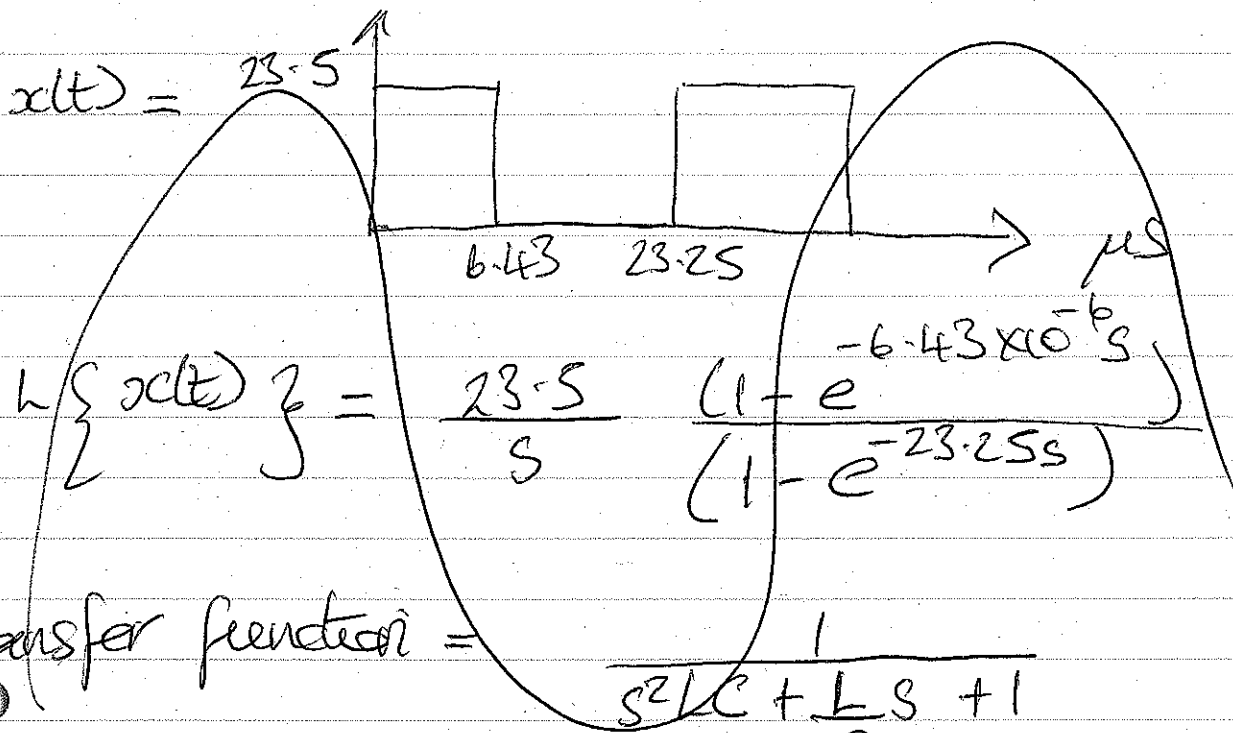 x(t) = 23.5
6.43 23.25 μs
L{x(t)} = 23.5/s (1 - e^-6.43×10^-6s)/(1 - e^-23.25s)
ansfer function = 1/(s²LC + L s + 1)